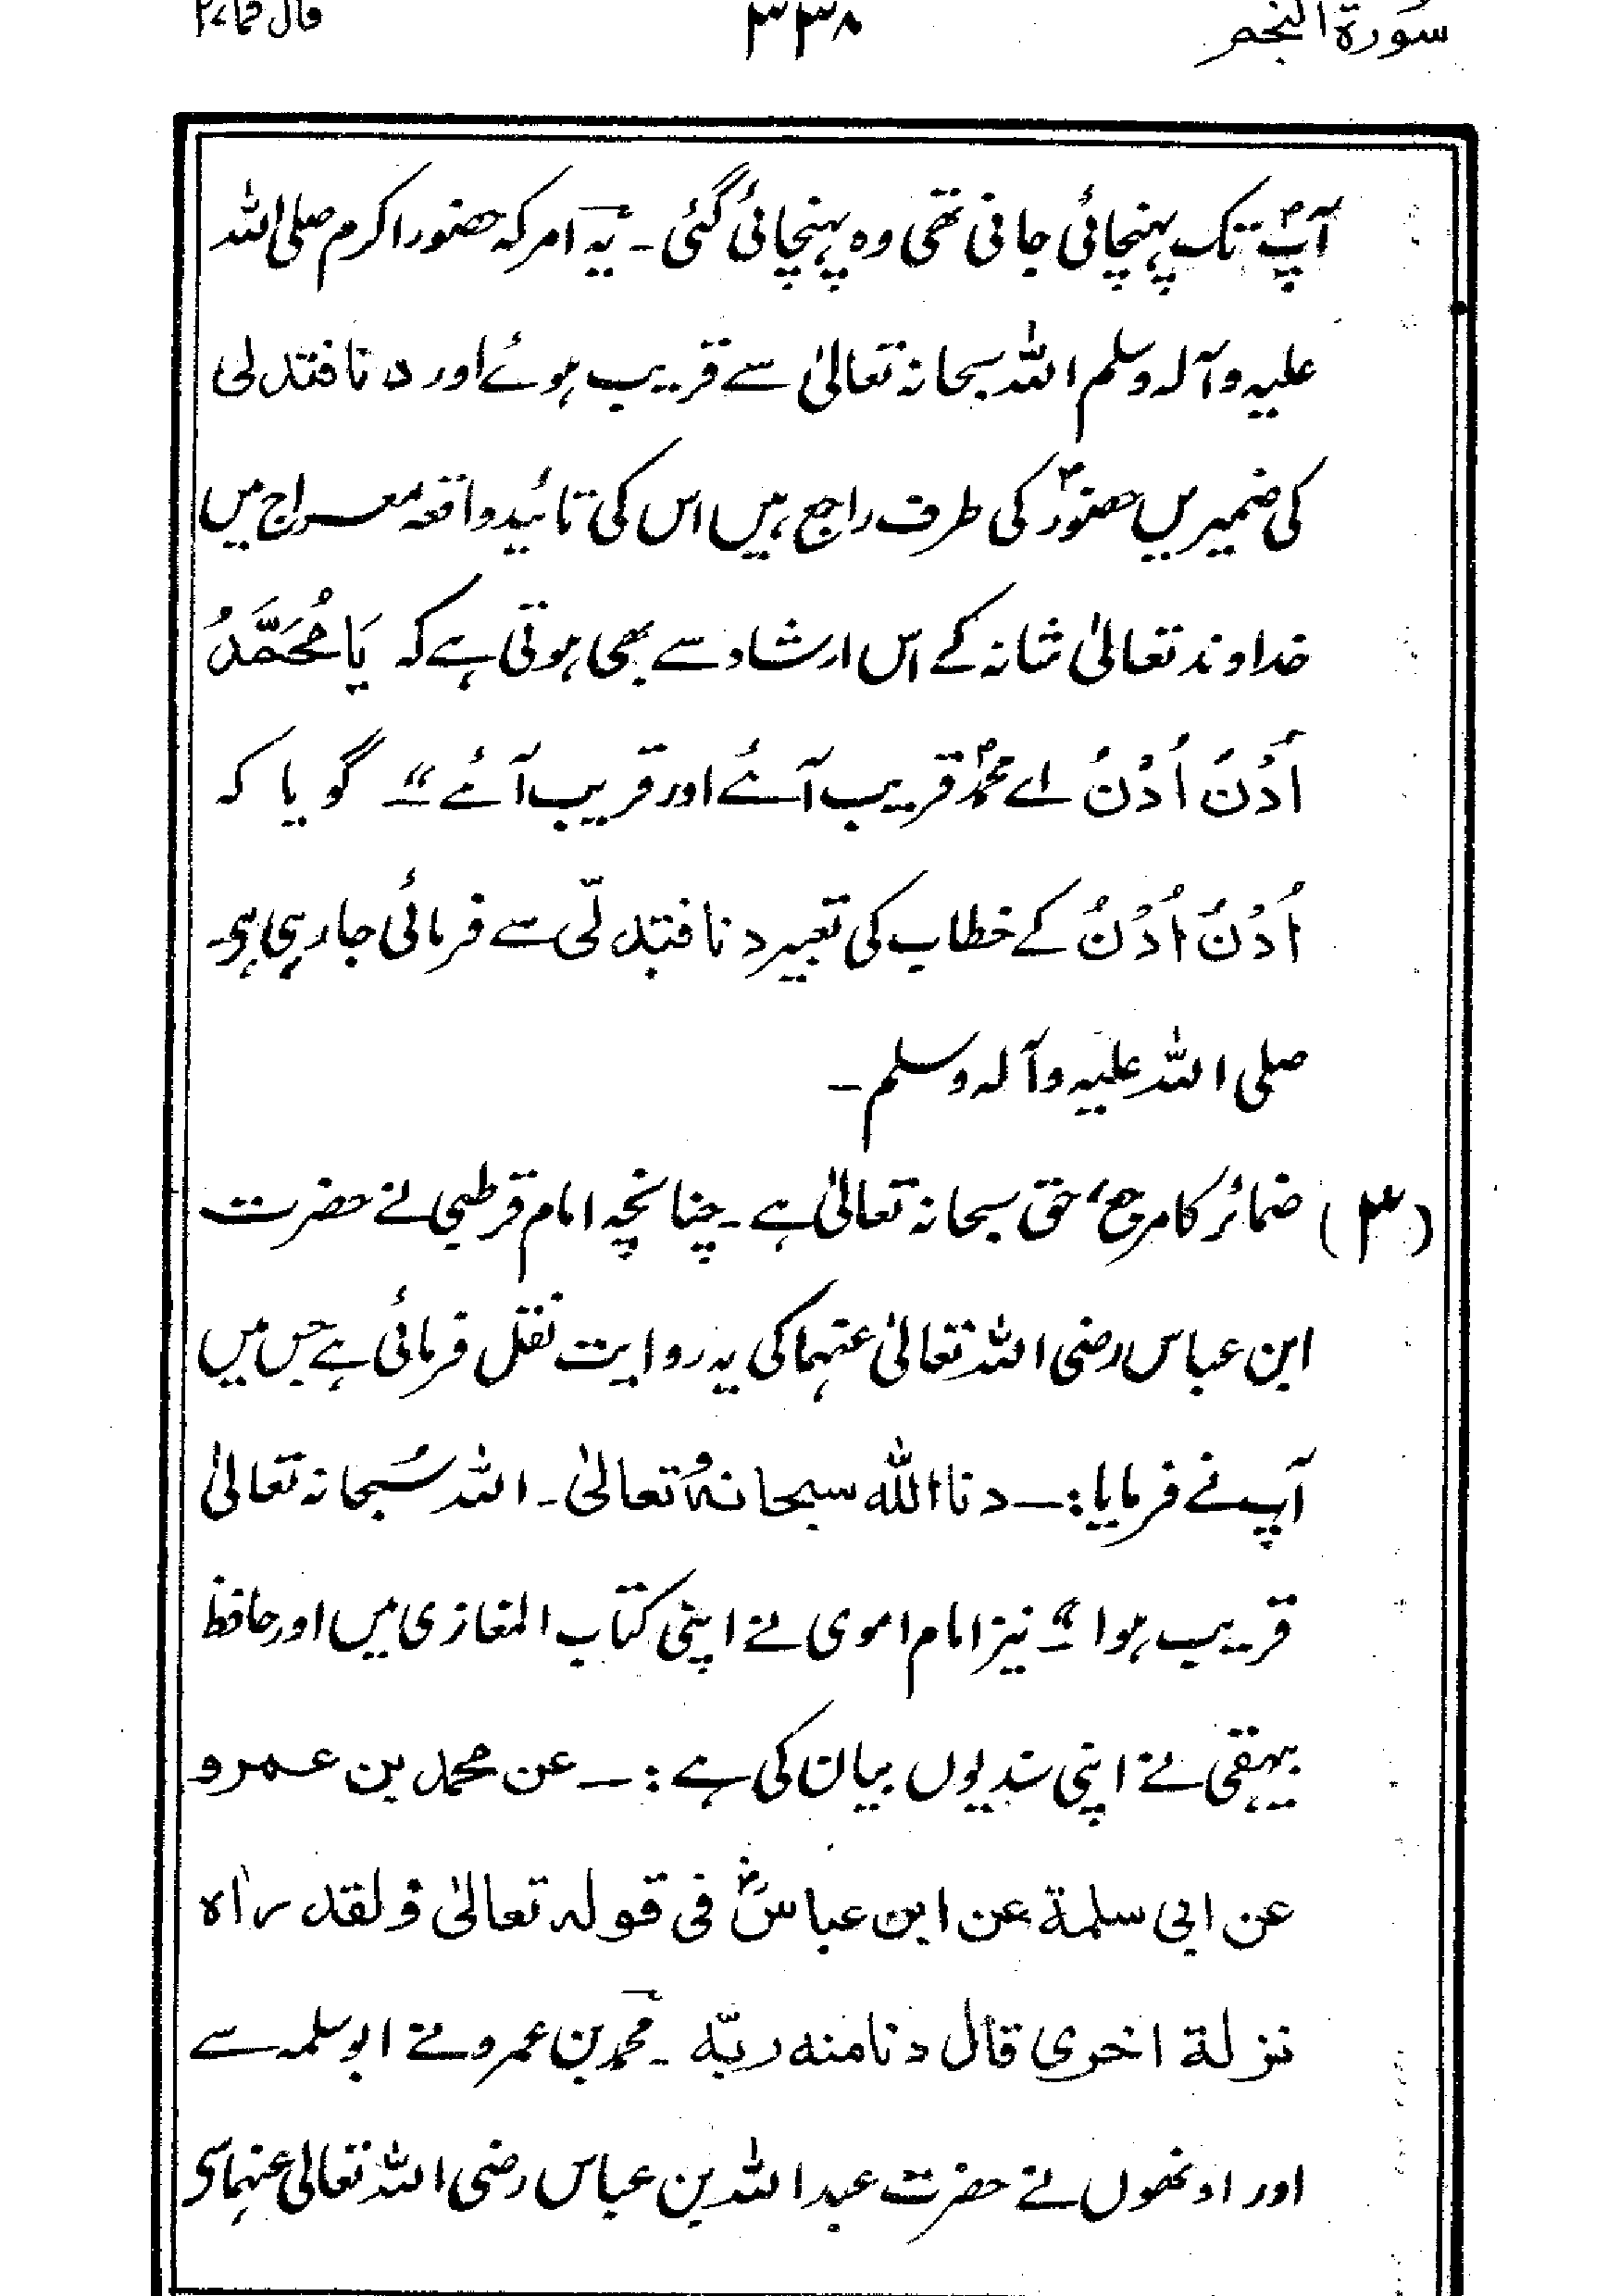 سورۃ النجم ۳۳۸ قال فما ۲۷
آپؐ تک پہنچائی جانی تھی وہ پہنچائی گئی ۔ یہ امر کہ حضور اکرم صلی اللہ
علیہ وآلہ وسلم اللہ سبحانہ تعالیٰ سے قریب ہوئے اور دنا فتدلی
کی ضمیریں حضورؐ کی طرف راجع ہیں اس کی تائید واقعہ معراج میں
خداوند تعالیٰ شانہ کے اس ارشاد سے بھی ہوتی ہے کہ یَا مُحَمَّدُ
اُدْنُ اُدْنُ اے محمدؐ قریب آئے اور قریب آئے ‘‘ گویا کہ
اُدْنُ اُدْنُ کے خطاب کی تعبیر دنا فتدلّی سے فرمائی جا رہی ہی۔
صلی اللہ علیہ وآلہ وسلم ۔
(۳) ضمائر کا مرجع، حق سبحانہ تعالیٰ ہے ۔ چنانچہ امام قرطبی نے حضرت
ابن عباس رضی اللہ تعالیٰ عنہما کی یہ روایت نقل فرمائی ہے جس میں
آپ نے فرمایا :۔ دنا اللہ سبحانہُ وتعالیٰ ۔ اللہ سُبحانہ تعالیٰ
قریب ہوا ‘‘ نیز امام اموی نے اپنی کتاب المغازی میں اور حافظ
بیہقی نے اپنی سند یوں بیان کی ہے :۔ عن محمد بن عمرو
عن ابی سلمۃ عن ابن عباسؓ فی قولہ تعالیٰ وَلقد راٰہ
نزلۃ اخری قال دنا منہ ربّہ ۔ محمد بن عمرو نے ابو سلمہ سے
اور اونھوں نے حضرت عبد اللہ بن عباس رضی اللہ تعالیٰ عنہما سی